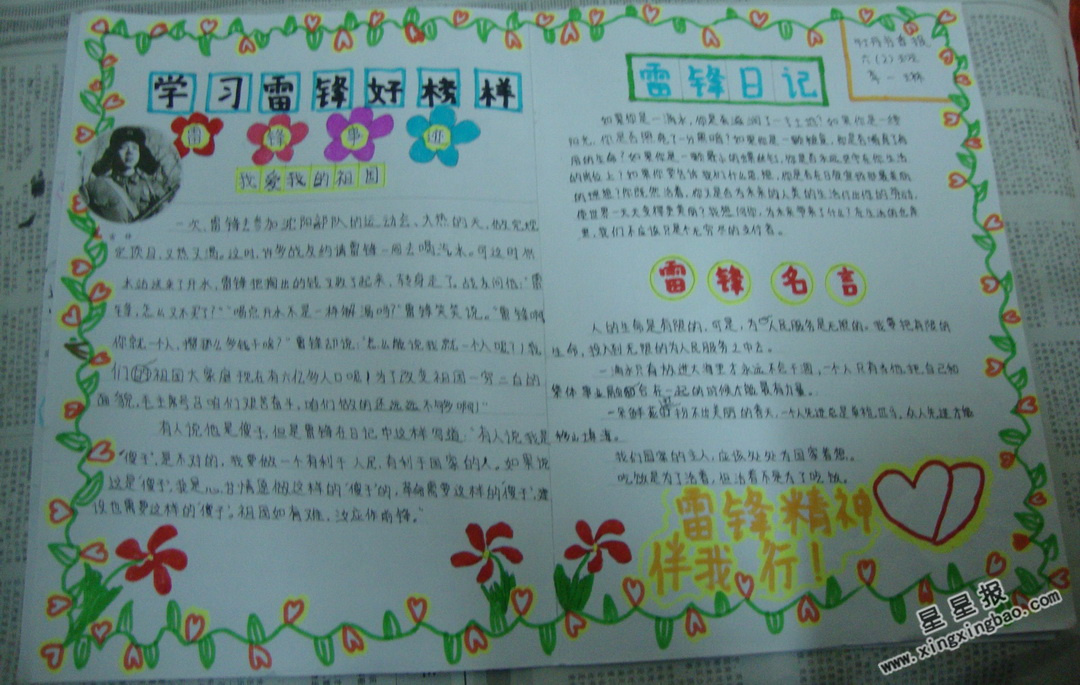 学习雷锋好榜样
雷锋事迹
我爱我的祖国
一次,雷锋去参加沈阳部队的运动会,大热的天,做完规
定项目,又热又渴。这时,许多战友约请雷锋一同去喝汽水。可这时
水站送来了开水,雷锋把掏出的钱又放了起来,转身走了。战友问他:"雷
锋,怎么又不买了?""喝点开水不是一样解渴吗?"雷锋笑笑说。"雷锋啊
你就一个人,攒那么多钱干啥?"雷锋却说:"怎么能说我就一个人呢?我
们的祖国大家庭现在有六亿多人口呢!为了改变祖国一穷二白的
面貌,毛主席号召咱们艰苦奋斗,咱们做的还远远不够啊!"
有人说他是傻子,但是雷锋在日记中这样写道:"有人说我是
"傻子",是不对的,我要做一个有利于人民,有利于国家的人。如果说
这是"傻子",我是心甘情愿做这样的"傻子"的,革命需要这样的"傻子",建
设也需要这样的"傻子"。祖国如有难,汝应作前锋。"
牡丹书香报
六(2)班
雷锋日记
如果你是一滴水,你是否滋润了一寸土地?如果你是一线
阳光,你是否照亮了一分黑暗?如果你是一颗粮食,你是否哺育了有
用的生命?如果你是一颗最小的螺丝钉,你是否永远坚守在你生活
的岗位上?如果你要告诉我们什么思想,你是否在日夜宣扬那最美丽
的理想?你既然活着,你又是否为未来的人类的生活付出你的劳动,
使世界一天天变得更美丽?我想问你,为未来带来了什么?在生活的仓库
里,我们不应该只是个无穷尽的支付者。
雷锋名言
人的生命是有限的,可是,为人民服务是无限的。我要把有限的
生命,投入到无限的为人民服务之中去。
一滴水只有放进大海里才永远不会干涸,一个人只有当他把自己和
集体事业融合在一起的时候才能最有力量。
一朵鲜花打扮不出美丽的春天,一个人先进总是单枪匹马,众人先进才能
移山填海。
我们国家的主人,应该处处为国家着想。
吃饭是为了活着,但活着不是为了吃饭。
雷锋精神
伴我行!
星星报
www.xingxingbao.com